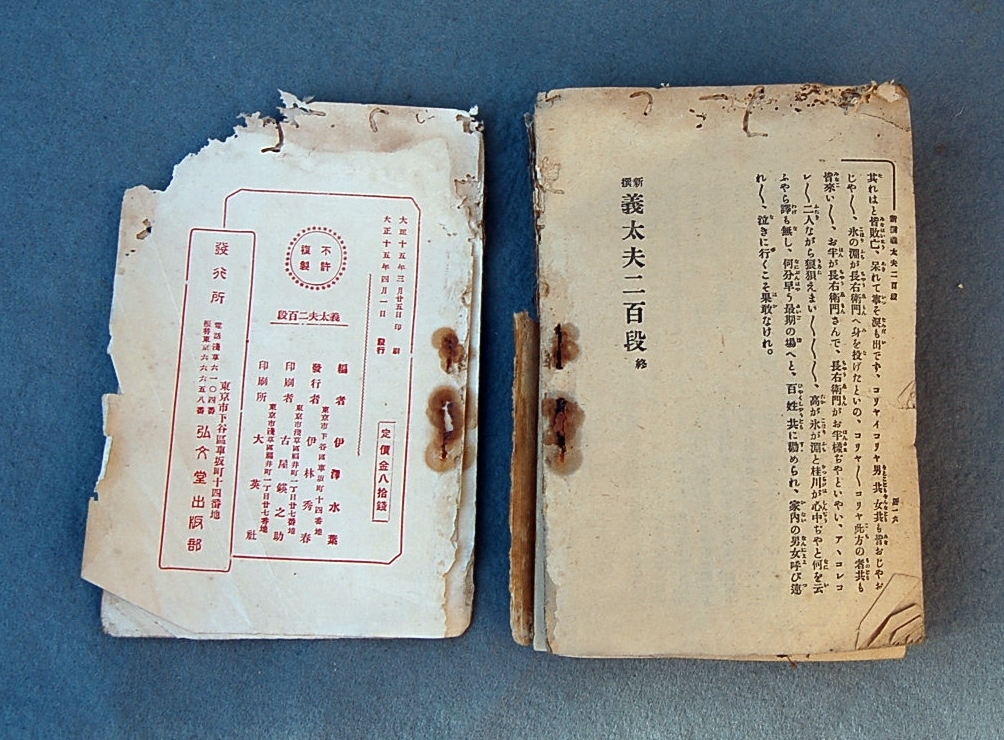 新撰義太夫二百段
其れはと皆敗亡、呆れて寧そ涙も出です、コリヤイコリヤ男共女共も皆おじやお
じや〳〵、氷の淵が長右衛門へ身を投げたといの、コリヤ〳〵コリヤ此方の者共も
皆來い〳〵、お半が長右衛門さんで、長右衛門がお半樣ぢやといやい、アヽコレコ
レ〳〵二人ながら狼狽えまい〳〵〳〵〳〵、高が氷が淵と桂川が心中ぢやと何を云
ふやら譯も無し、何分早う最期の場へと、百姓共に勸められ、家内の男女呼び連
れ〳〵、泣きに行くこそ果敢なけれ。
新撰 義太夫二百段 終
大正十五年三月廿五日印刷
大正十五年四月一日發行
不許複製
義太夫二百段
定價金八拾錢
編者 伊澤水葉
東京市下谷區車坂町十四番地
發行者 伊林秀春
東京市淺草區福井町一丁目廿七番地
印刷者 古屋鍈之助
東京市淺草區福井町一丁目廿七番地
印刷所 大英社
發行所
東京市下谷區車坂町十四番地
弘文堂出版部
電話淺草六一〇四番
振替東京六六六五八番